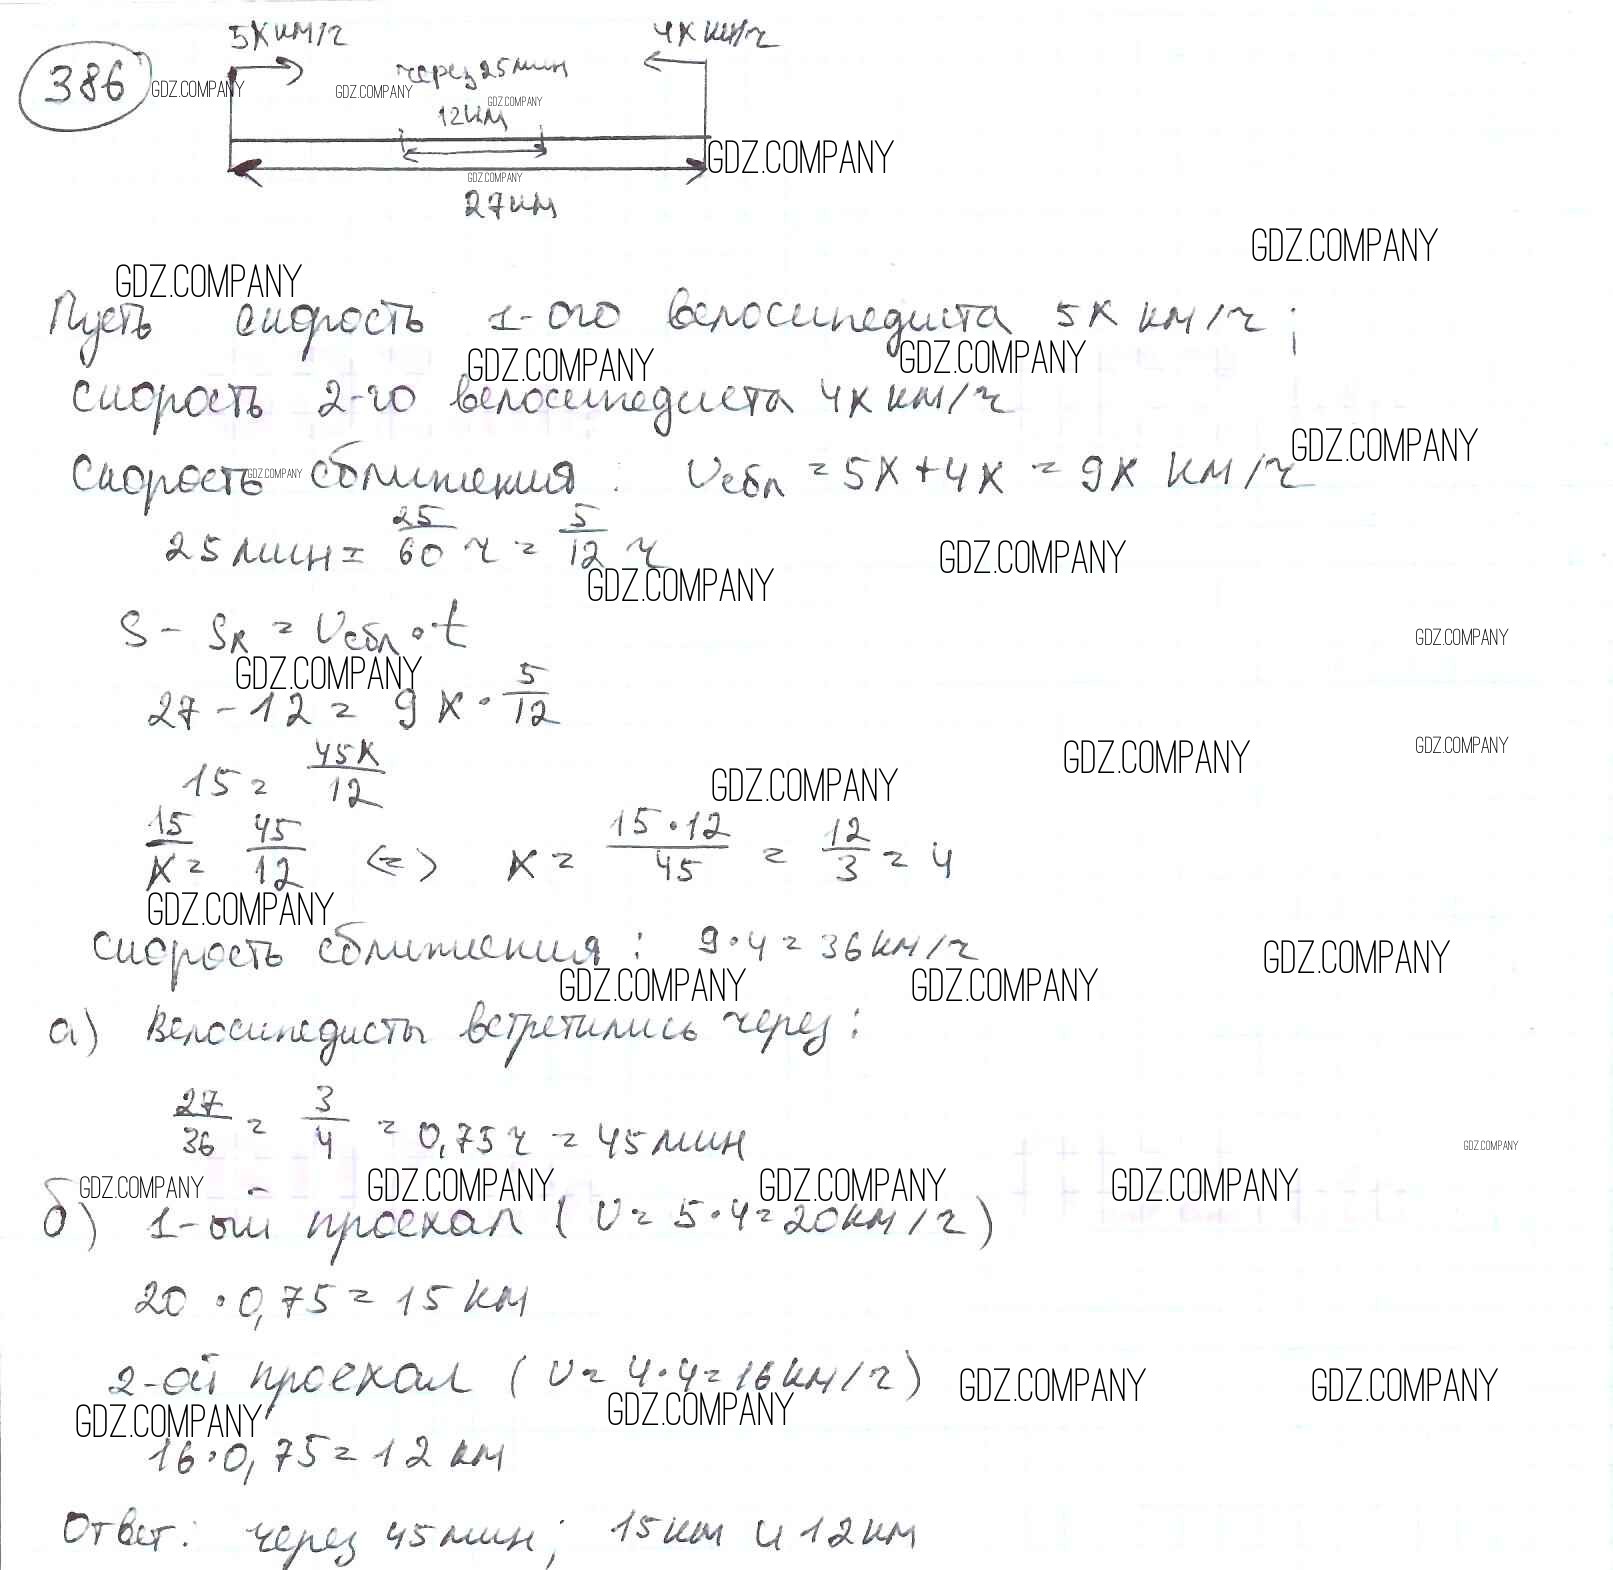 5х км/ч 4х км/ч
386 GDZ.COMPANY GDZ.COMPANY через 25 мин
GDZ.COMPANY
12 км
GDZ.COMPANY
GDZ.COMPANY
27 км
GDZ.COMPANY
GDZ.COMPANY
Пусть скорость 1-ого велосипедиста 5х км/ч;
GDZ.COMPANY GDZ.COMPANY
скорость 2-го велосипедиста 4х км/ч
GDZ.COMPANY
Скорость GDZ.COMPANY сближения: Vсбл = 5х + 4х = 9х км/ч
25 мин = 25/60 ч = 5/12 ч
GDZ.COMPANY GDZ.COMPANY
S - Sк = Vсбл · t
GDZ.COMPANY GDZ.COMPANY
27 - 12 = 9х · 5/12
15 = 45х/12
GDZ.COMPANY GDZ.COMPANY GDZ.COMPANY
15/х = 45/12 <=> х = 15·12/45 = 12/3 = 4
GDZ.COMPANY
скорость сближения: 9·4 = 36 км/ч
GDZ.COMPANY GDZ.COMPANY GDZ.COMPANY
а) Велосипедисты встретились через:
27/36 = 3/4 = 0,75 ч = 45 мин
GDZ.COMPANY
GDZ.COMPANY GDZ.COMPANY GDZ.COMPANY GDZ.COMPANY
б) 1-ый проехал (V = 5·4 = 20 км/ч)
20 · 0,75 = 15 км
2-ой проехал (V = 4·4 = 16 км/ч)
GDZ.COMPANY GDZ.COMPANY
GDZ.COMPANY GDZ.COMPANY
16·0,75 = 12 км
Ответ: через 45 мин; 15 км и 12 км